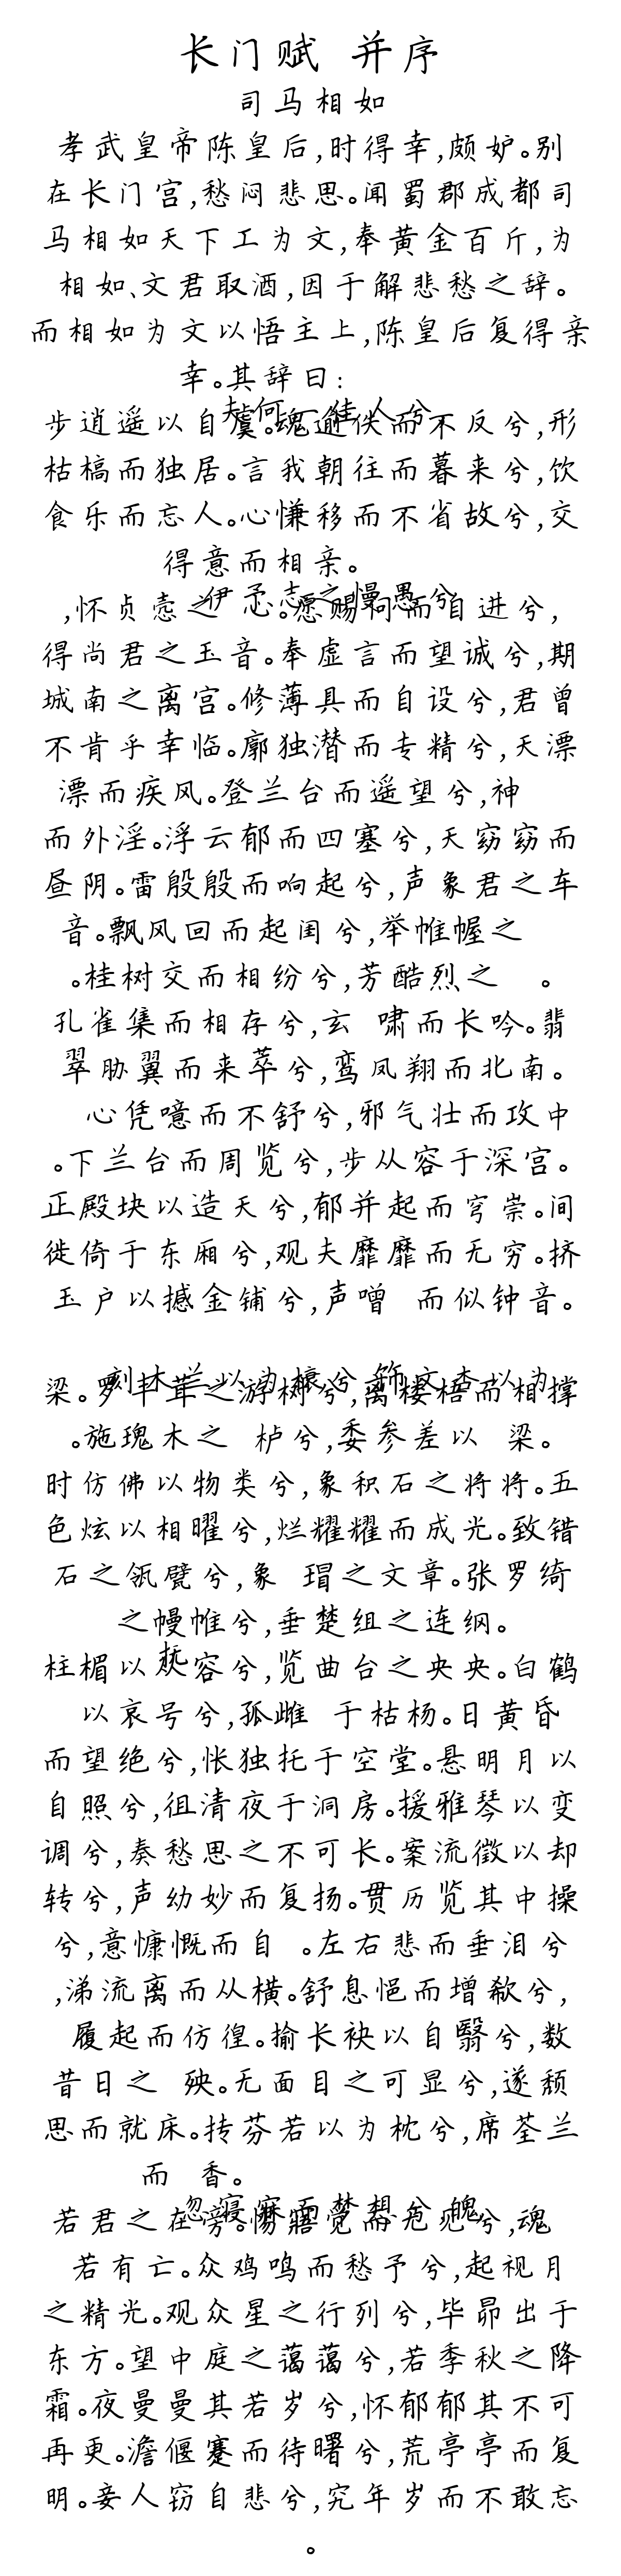 长门赋 并序
司马相如
孝武皇帝陈皇后,时得幸,颇妒。别
在长门宫,愁闷悲思。闻蜀郡成都司
马相如天下工为文,奉黄金百斤,为
相如、文君取酒,因于解悲愁之辞。
而相如为文以悟主上,陈皇后复得亲
幸。其辞曰:
夫何一佳人兮
步逍遥以自虞。魂逾佚而不反兮,形
枯槁而独居。言我朝往而暮来兮,饮
食乐而忘人。心慊移而不省故兮,交
得意而相亲。
伊予志之慢愚兮
,怀贞悫之 心。愿赐问而自进兮,
得尚君之玉音。奉虚言而望诚兮,期
城南之离宫。修薄具而自设兮,君曾
不肯乎幸临。廓独潜而专精兮,天漂
漂而疾风。登兰台而遥望兮,神
而外淫。浮云郁而四塞兮,天窈窈而
昼阴。雷殷殷而响起兮,声象君之车
音。飘风回而起闺兮,举帷幄之
。桂树交而相纷兮,芳酷烈之 。
孔雀集而相存兮,玄 啸而长吟。翡
翠胁翼而来萃兮,鸾凤翔而北南。
心凭噫而不舒兮,邪气壮而攻中
。下兰台而周览兮,步从容于深宫。
正殿块以造天兮,郁并起而穹崇。间
徙倚于东厢兮,观夫靡靡而无穷。挤
玉户以撼金铺兮,声噌 而似钟音。
刻木兰以为榱兮,饰文杏以为
梁。罗丰茸之游树兮,离楼梧而相撑
。施瑰木之 栌兮,委参差以 梁。
时仿佛以物类兮,象积石之将将。五
色炫以相曜兮,烂耀耀而成光。致错
石之瓴甓兮,象 瑁之文章。张罗绮
之幔帷兮,垂楚组之连纲。
柱楣以 容兮,览曲台之央央。白鹤
以哀号兮,孤雌 于枯杨。日黄昏
而望绝兮,怅独托于空堂。悬明月以
自照兮,徂清夜于洞房。援雅琴以变
调兮,奏愁思之不可长。案流徵以却
转兮,声幼妙而复扬。贯历览其中操
兮,意慷慨而自 。左右悲而垂泪兮
,涕流离而从横。舒息悒而增欷兮,
履起而仿徨。揄长袂以自翳兮,数
昔日之 殃。无面目之可显兮,遂颓
思而就床。抟芬若以为枕兮,席荃兰
而 香。
忽寝寐而梦想兮,魄
若君之在旁。惕寤觉而无见兮,魂
若有亡。众鸡鸣而愁予兮,起视月
之精光。观众星之行列兮,毕昴出于
东方。望中庭之蔼蔼兮,若季秋之降
霜。夜曼曼其若岁兮,怀郁郁其不可
再更。澹偃蹇而待曙兮,荒亭亭而复
明。妾人窃自悲兮,究年岁而不敢忘
。